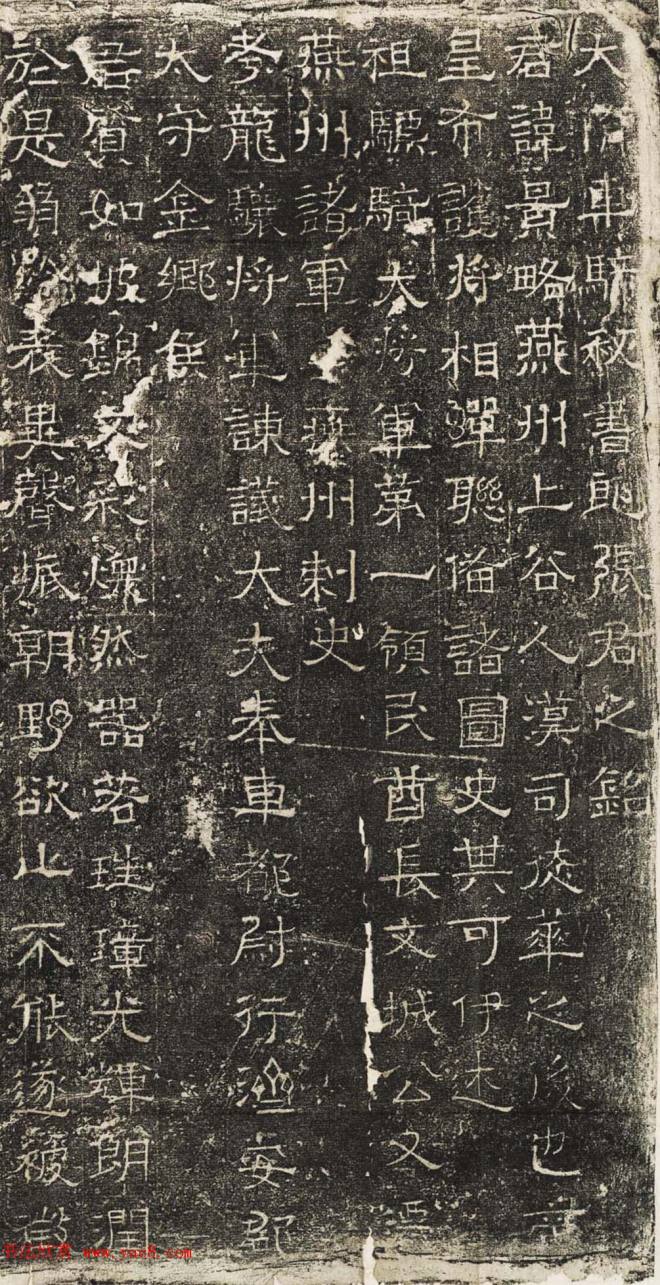 大隋車騎秘書郎張君之銘
君諱景略燕州上谷人漢司徒華之後也
星布護將相蟬聯備諸圖史其可伊述
祖驃騎大將軍第一領民酋長文城公又
燕州諸軍事燕州刺史
考龍驤將軍諫議大夫奉車都尉行濟安郡
太守金鄉侯
君質如披錦文彩爛然器若珪璋光輝朗潤
於是表異聲振朝野欲止不能遂被徵
www.yac8.com